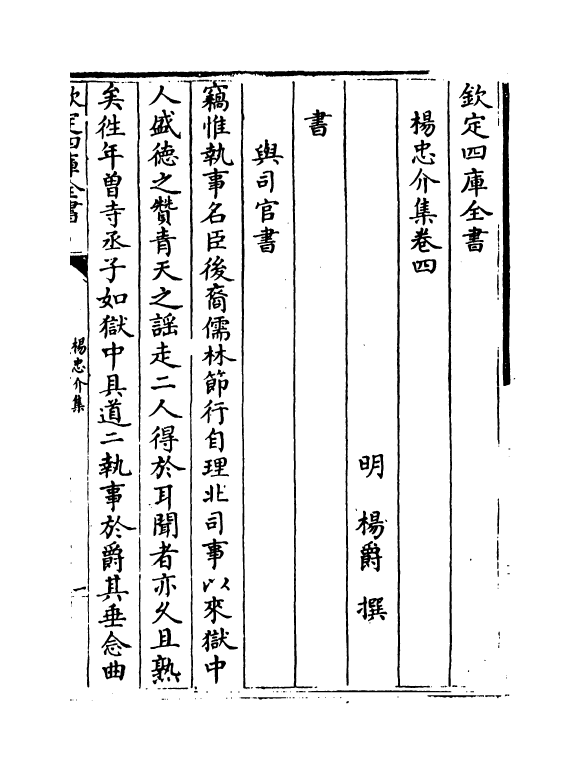 欽定四庫全書
楊忠介集卷四
明 楊爵 撰
書
與司官書
竊惟執事名臣後裔儒林節行自理北司事以來獄中
人盛德之贊青天之謡走二人得於耳聞者亦久且熟
矣徃年曽寺丞子如獄中具道二執事於爵其垂念曲
欽定四庫全書
楊忠介集
一